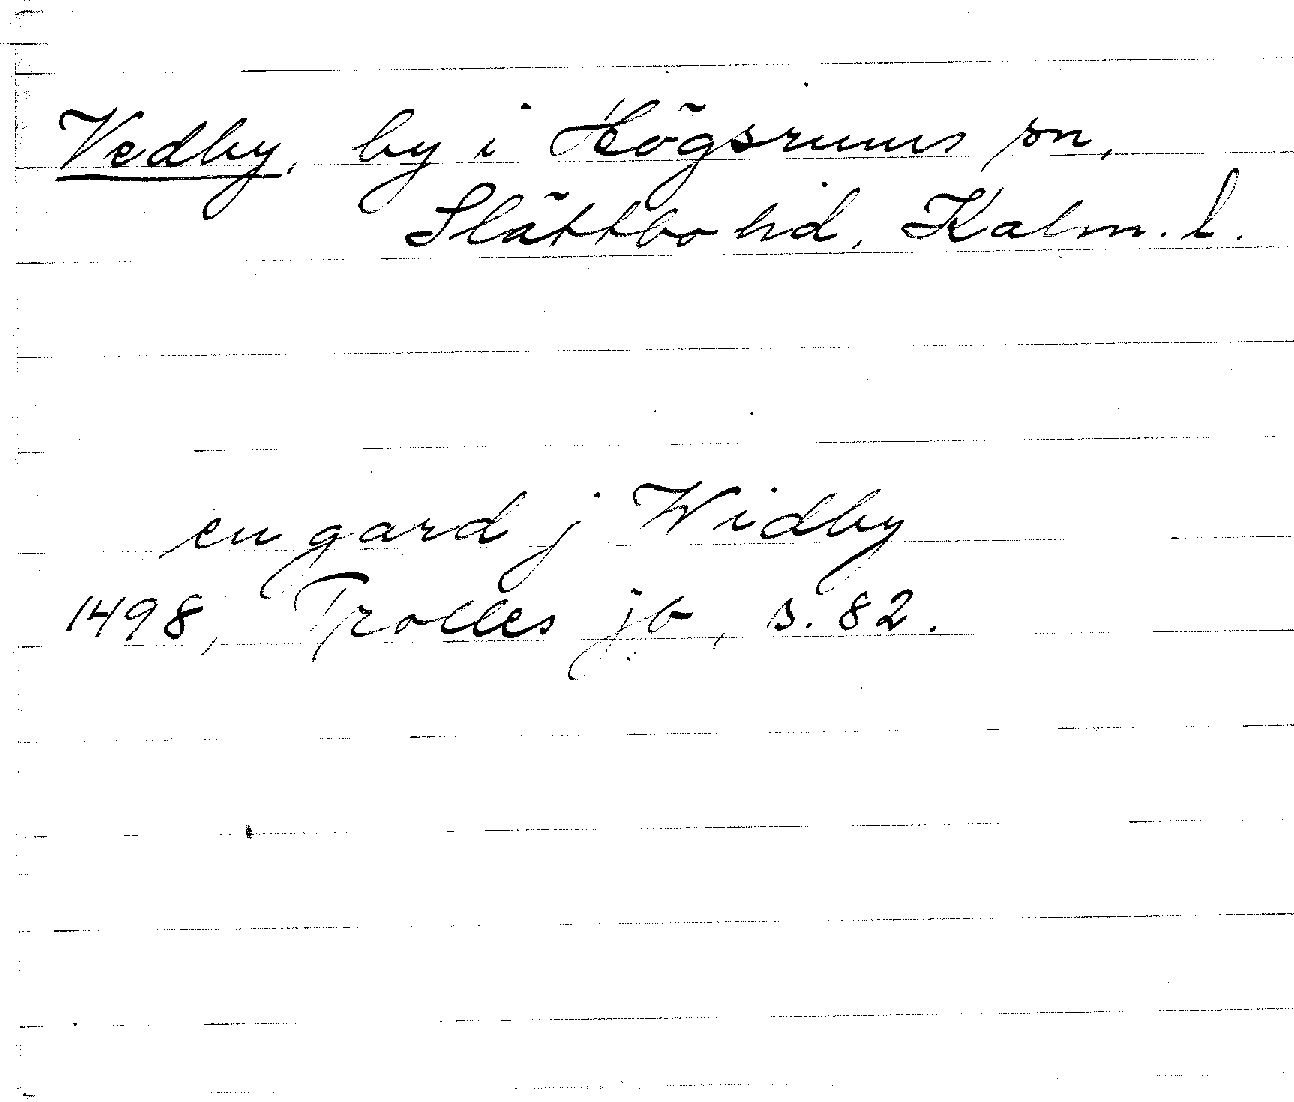 Vedby, by i Högsrums sn,
Slättbo hd, Kalm. l.
en gard j Widby
1498, Trolles jb, s. 82.